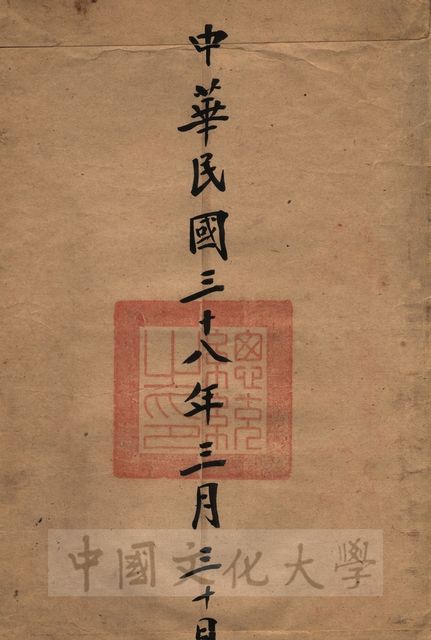 中華民國三十八年三月三十日
中國文化大學